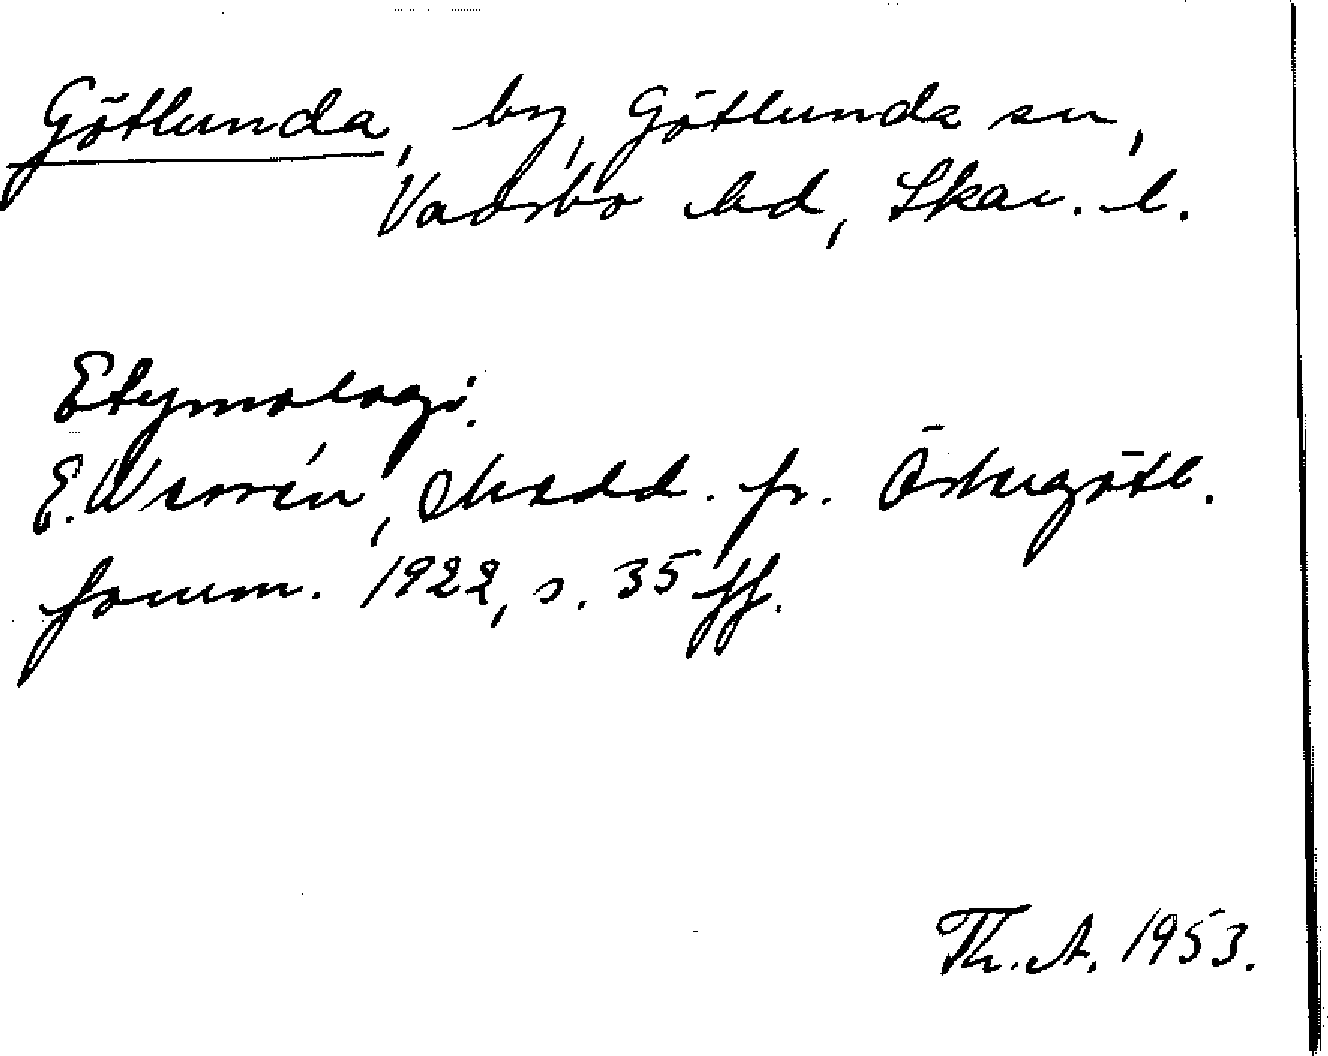 Götlunda, by, Götlunda sn,
Vadsbo hd, Skar. l.
Etymologi.
E. Wessén, Medd. fr. Östergötl.
fornm. 1922, s. 35 ff.
Th. A. 1953.